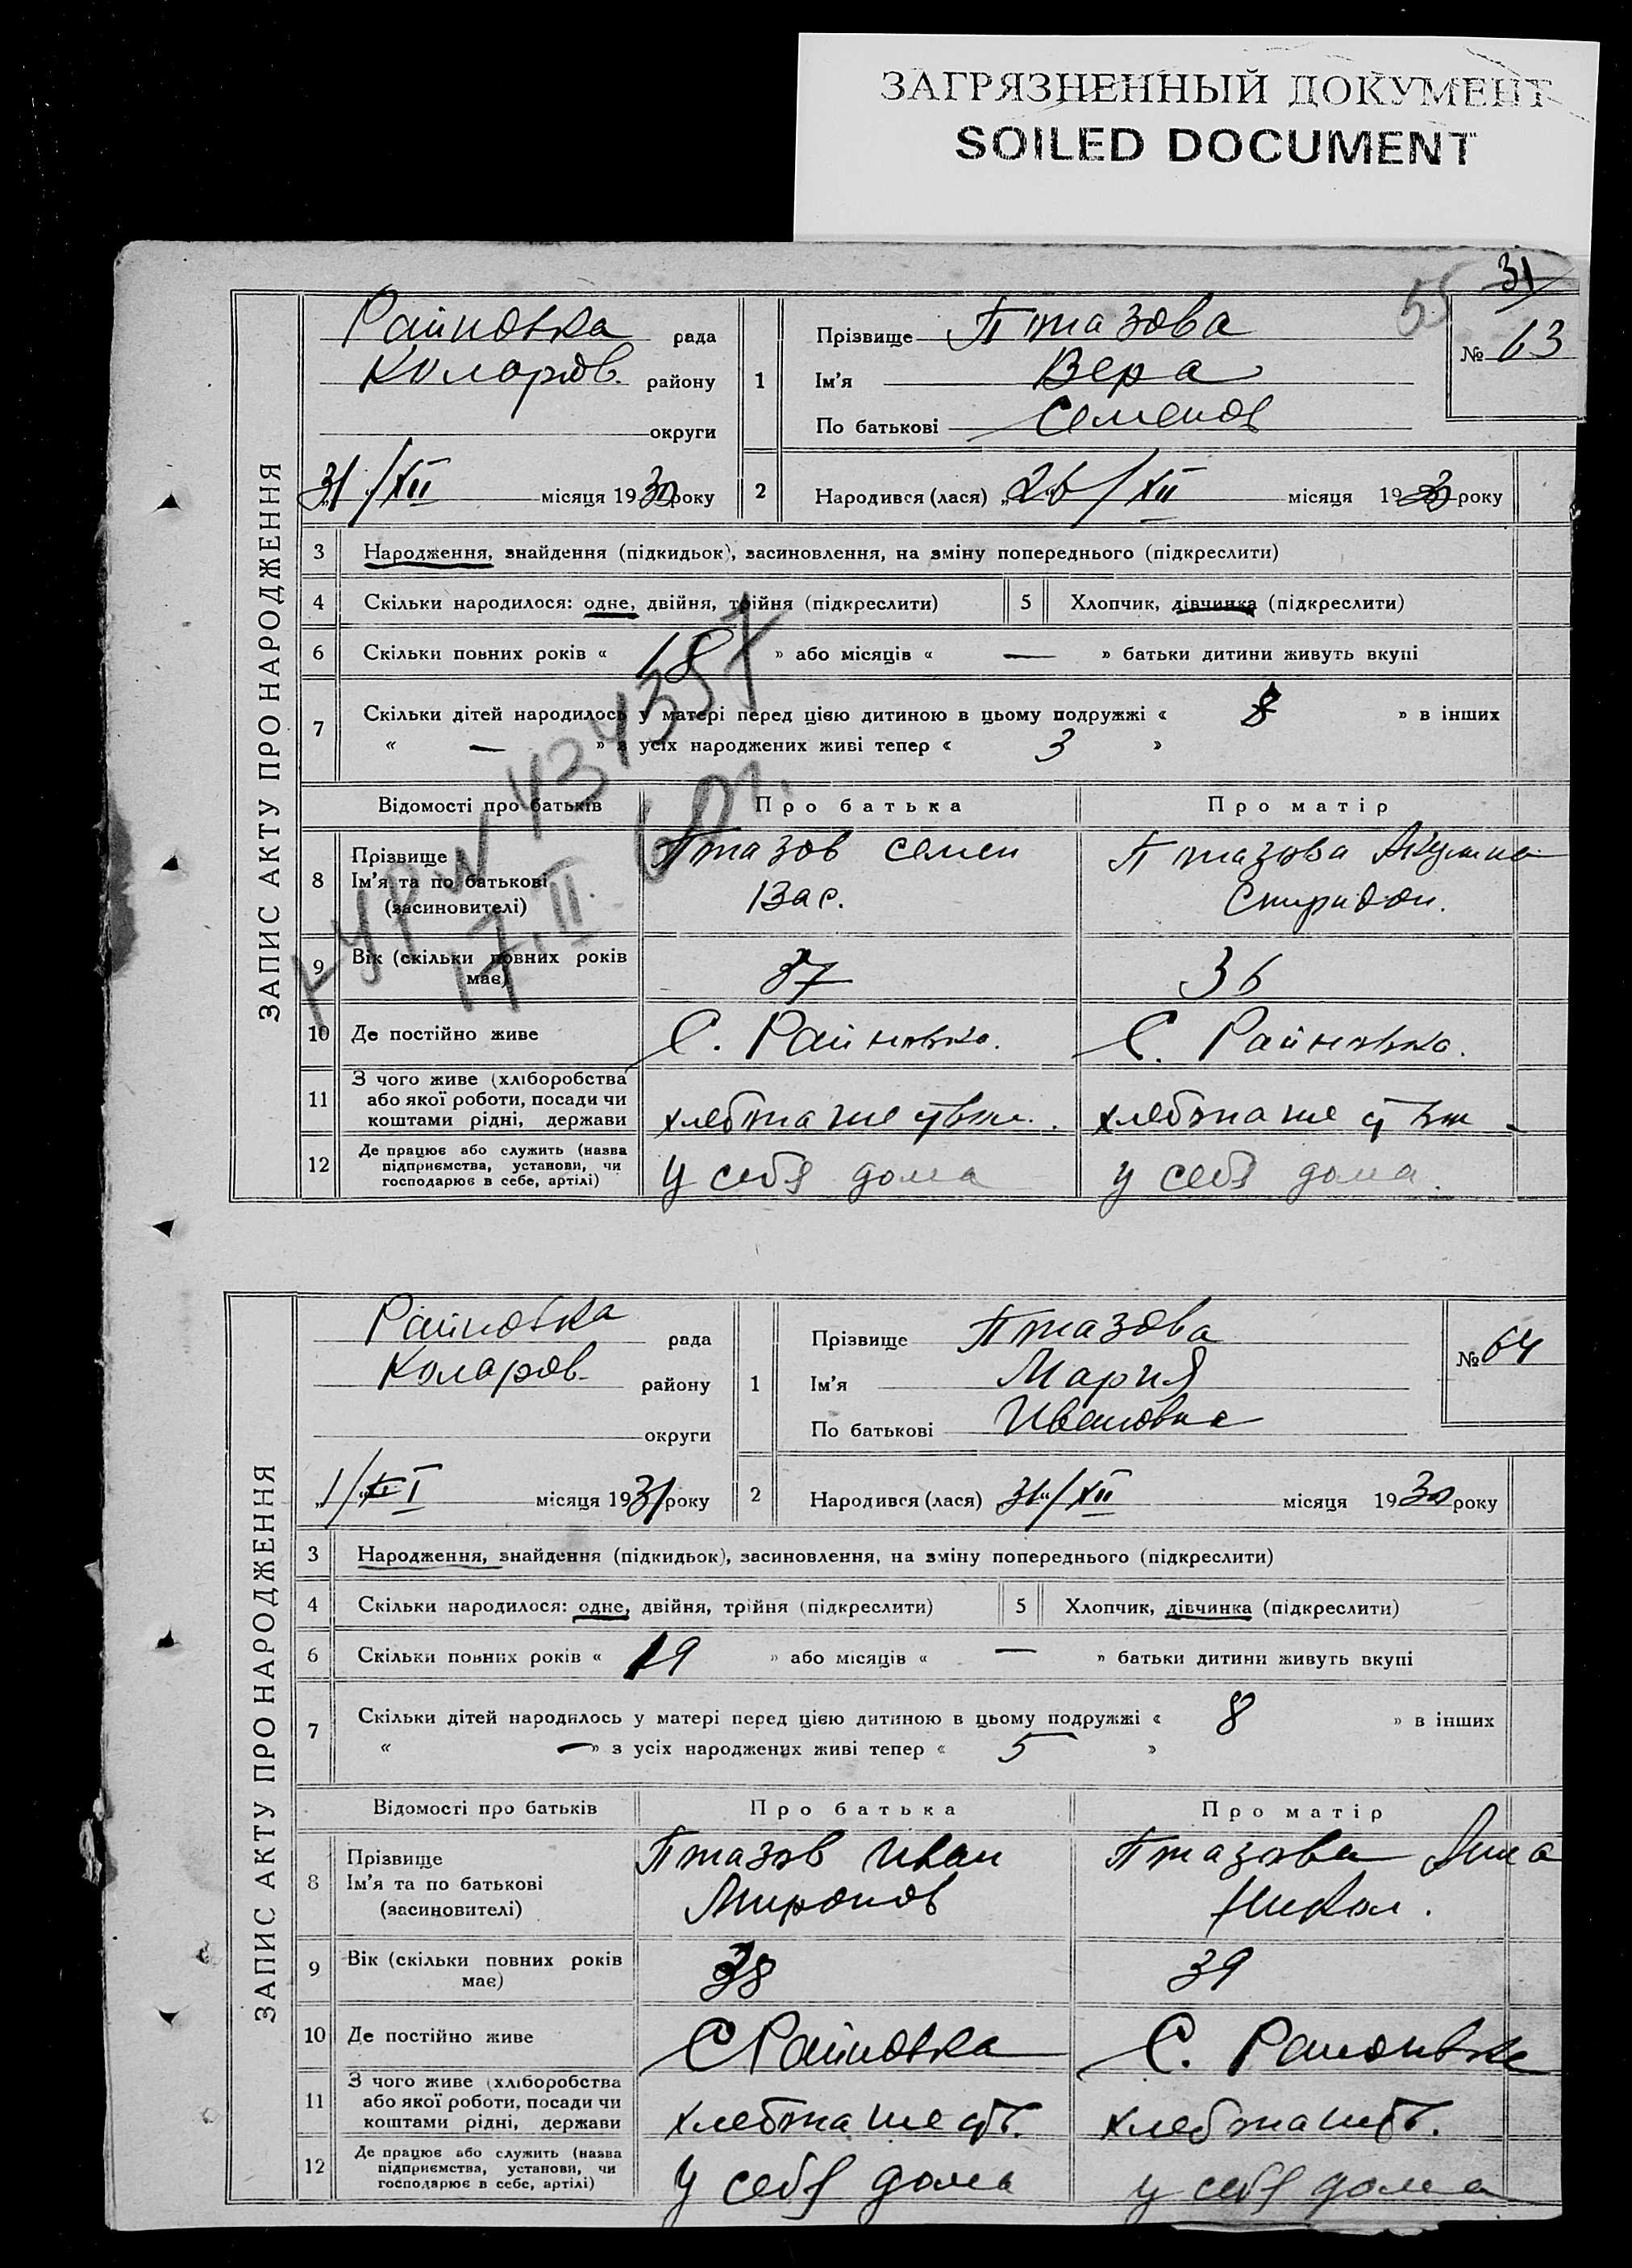 ЗАГРЯЗНЕННЫЙ ДОКУМЕНТ
SOILED DOCUMENT
31
55
ЗАПИС АКТУ ПРО НАРОДЖЕННЯ
Райновка рада
Коларов. району
округи
31/XII місяця 1930 року
1 Прізвище Птазова
Ім'я Вера
По батькові Семенов
№ 63
2 Народився (лася) „26/XII місяця 1930 року
3 Народження, знайдення (підкидьок), засиновлення, на зміну попереднього (підкреслити)
4 Скільки народилося: одне, двійня, трійня (підкреслити) 5 Хлопчик, дівчинка (підкреслити)
6 Скільки повних років « 18 » або місяців « — » батьки дитини живуть вкупі
7 Скільки дітей народилось у матері перед цією дитиною в цьому подружжі « 8 » в інших
« — » з усіх народжених живі тепер « 3 »
Відомості про батьків Про батька Про матір
8 Прізвище Ім'я та по батькові (засиновителі) Птазов Семен Вас. Птазова Спиридон.
9 Вік (скільки повних років має) 37 36
10 Де постійно живе С. Райновка. С. Райновка.
11 З чого живе (хліборобства або якої роботи, посади чи коштами рідні, держави хлебопашеств. хлебопашеств
12 Де працює або служить (назва підприємства, установи, чи господарює в себе, артілі) У себя дома у себя дома.
17.II.60г.
ЗАПИС АКТУ ПРО НАРОДЖЕННЯ
Райновка рада
Коларов. району
округи
„1/I місяця 1931 року
1 Прізвище Птазова
Ім'я Мария
По батькові Ивановна
№ 64
2 Народився (лася) 31"/XII місяця 1930 року
3 Народження, знайдення (підкидьок), засиновлення, на зміну попереднього (підкреслити)
4 Скільки народилося: одне, двійня, трійня (підкреслити) 5 Хлопчик, дівчинка (підкреслити)
6 Скільки повних років « 19 » або місяців « — » батьки дитини живуть вкупі
7 Скільки дітей народилось у матері перед цією дитиною в цьому подружжі « 8 » в інших
« — » з усіх народжених живі тепер « 5 »
Відомості про батьків Про батька Про матір
8 Прізвище Ім'я та по батькові (засиновителі) Птазов Иван Миронов Птазова Анна Никол.
9 Вік (скільки повних років має) 38 39
10 Де постійно живе С Райновка С. Райновка
11 З чого живе (хліборобства або якої роботи, посади чи коштами рідні, держави хлебопашеств. хлебопашств.
12 Де працює або служить (назва підприємства, установи, чи господарює в себе, артілі) У себя дома у себя дома